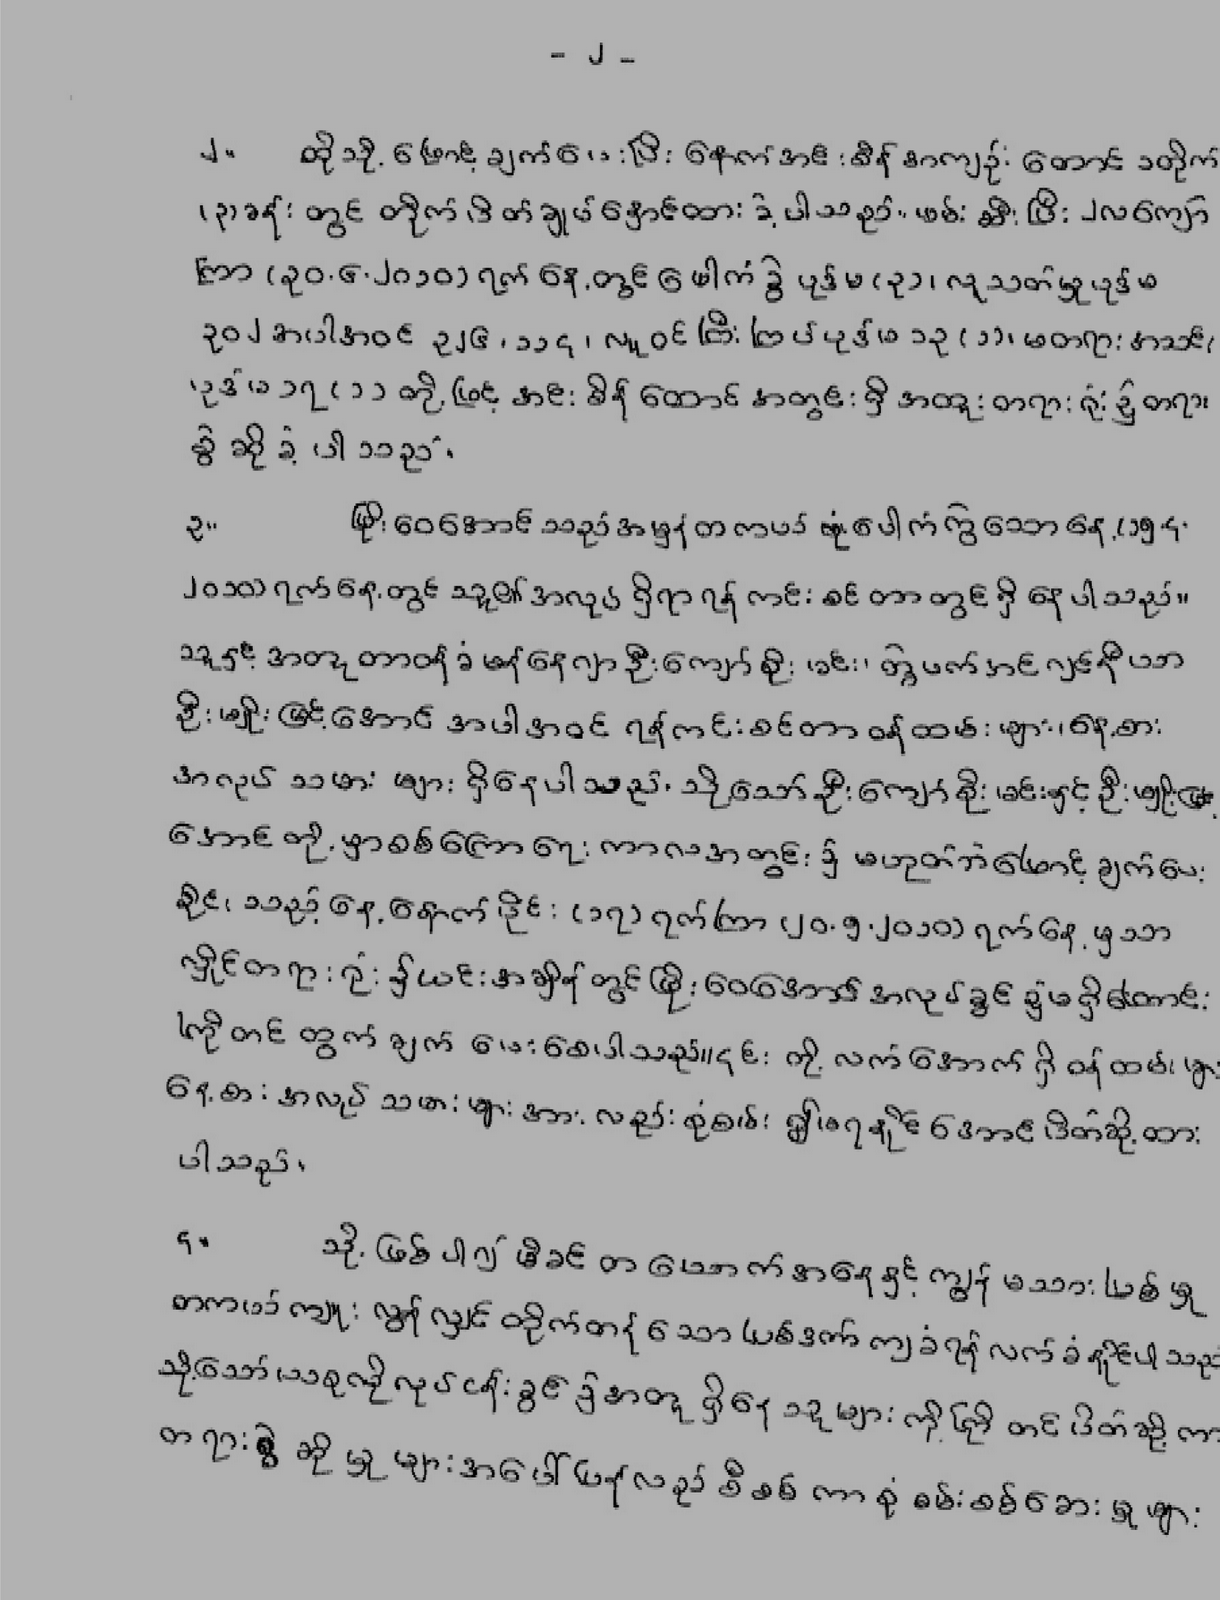 - ၂ -
၂။ ထိုသို့ ဖြောင့်ချက်ပေးပြီး နောက်အင်းစိန်အကျဉ်းထောင် ၁တိုက်
(၃)ခန်း တွင် တိုက်ပိတ်ချုပ်နှောင်ထား ခဲ့ပါသည်။ ဖမ်းဆီးပြီး ၂လကျော်
ကြာ (၃၀.၆.၂၀၁၀) ရက်နေ့တွင် ဖေါက်ခွဲ ပုဒ်မ(၃)၊ လူသတ်မှုပုဒ်မ
၃၀၂ အပါအဝင် ၃၂၆၊ ၁၁၄၊ လူဝင်ကြီးကြပ်ပုဒ်မ ၁၃(၁)၊ မတရားအသင်း
ပုဒ်မ ၁၇(၁) တို့ဖြင့် အင်းစိန်ထောင်အတွင်းရှိ အထူးတရားရုံး၌ တရား
စွဲဆိုခဲ့ပါသည်။
၃။ ဖြိုးဝေအောင်သည် အမှန်တကယ် ဗုံးပေါက်ကွဲသောနေ့ (၁၅.၄.
၂၀၁၀) ရက်နေ့တွင် သူ၏အလုပ်ရှိရာ ရန်ကင်းစင်တာတွင်ရှိနေပါသည်။
သူနှင့်အတူ တာဝန်ခံမန်နေဂျာ ဦးကျော်စိုးခင်း၊ တွဲဖက်အင်ဂျင်နီယာ
ဦးမျိုးမြင့်အောင် အပါအဝင် ရန်ကင်းစင်တာ ဝန်ထမ်းများ၊ နေ့စား
အလုပ်သမားများ ရှိနေပါသည်။ သို့သော် ဦးကျော်စိုးခင်းနှင့် ဦးမျိုးမြင့်
အောင်တို့မှာ စစ်ကြောရေးကာလအတွင်း၌ မဟုတ်ဘဲ ဖြောင့်ချက်ပေး
စိုင်း၊ သည့်နေ့နောက်ပိုင်း (၁၇) ရက်ကြာ (၂၀.၅.၂၀၁၀) ရက်နေ့မှသာ
လှိုင်တရားရုံး၌ ယင်းအချိန်တွင် ဖြိုးဝေအောင် အလုပ်ခွင်၌မရှိကြောင်း
ကြိုတင်ထွက်ချက် ပေးစေပါသည်။ ၎င်းတို့ လက်အောက်ရှိ ဝန်ထမ်းများ
နေ့စားအလုပ်သမားများအား လည်း စုံစမ်း၍မရနိုင်အောင် ပိတ်ဆို့ထား
ပါသည်။
၄။ သို့ဖြစ်ပါ၍ မိခင်တယောက်အနေနှင့် ကျွန်မသား ပြစ်မှု
တကယ်ကျူးလွန်လျှင် ထိုက်တန်သော ပြစ်ဒဏ်ကျခံရန် လက်ခံနိုင်ပါသည်
သို့သော် ယခုလိုလုပ်ငန်းခွင်၌ အတူရှိနေသူများကို ကြိုတင်ပိတ်ဆို့ကာ
တရားစွဲဆိုမှုများအပေါ် ပြန်လည်စီစစ်ကာ စုံစမ်းစစ်ဆေးမှုများ